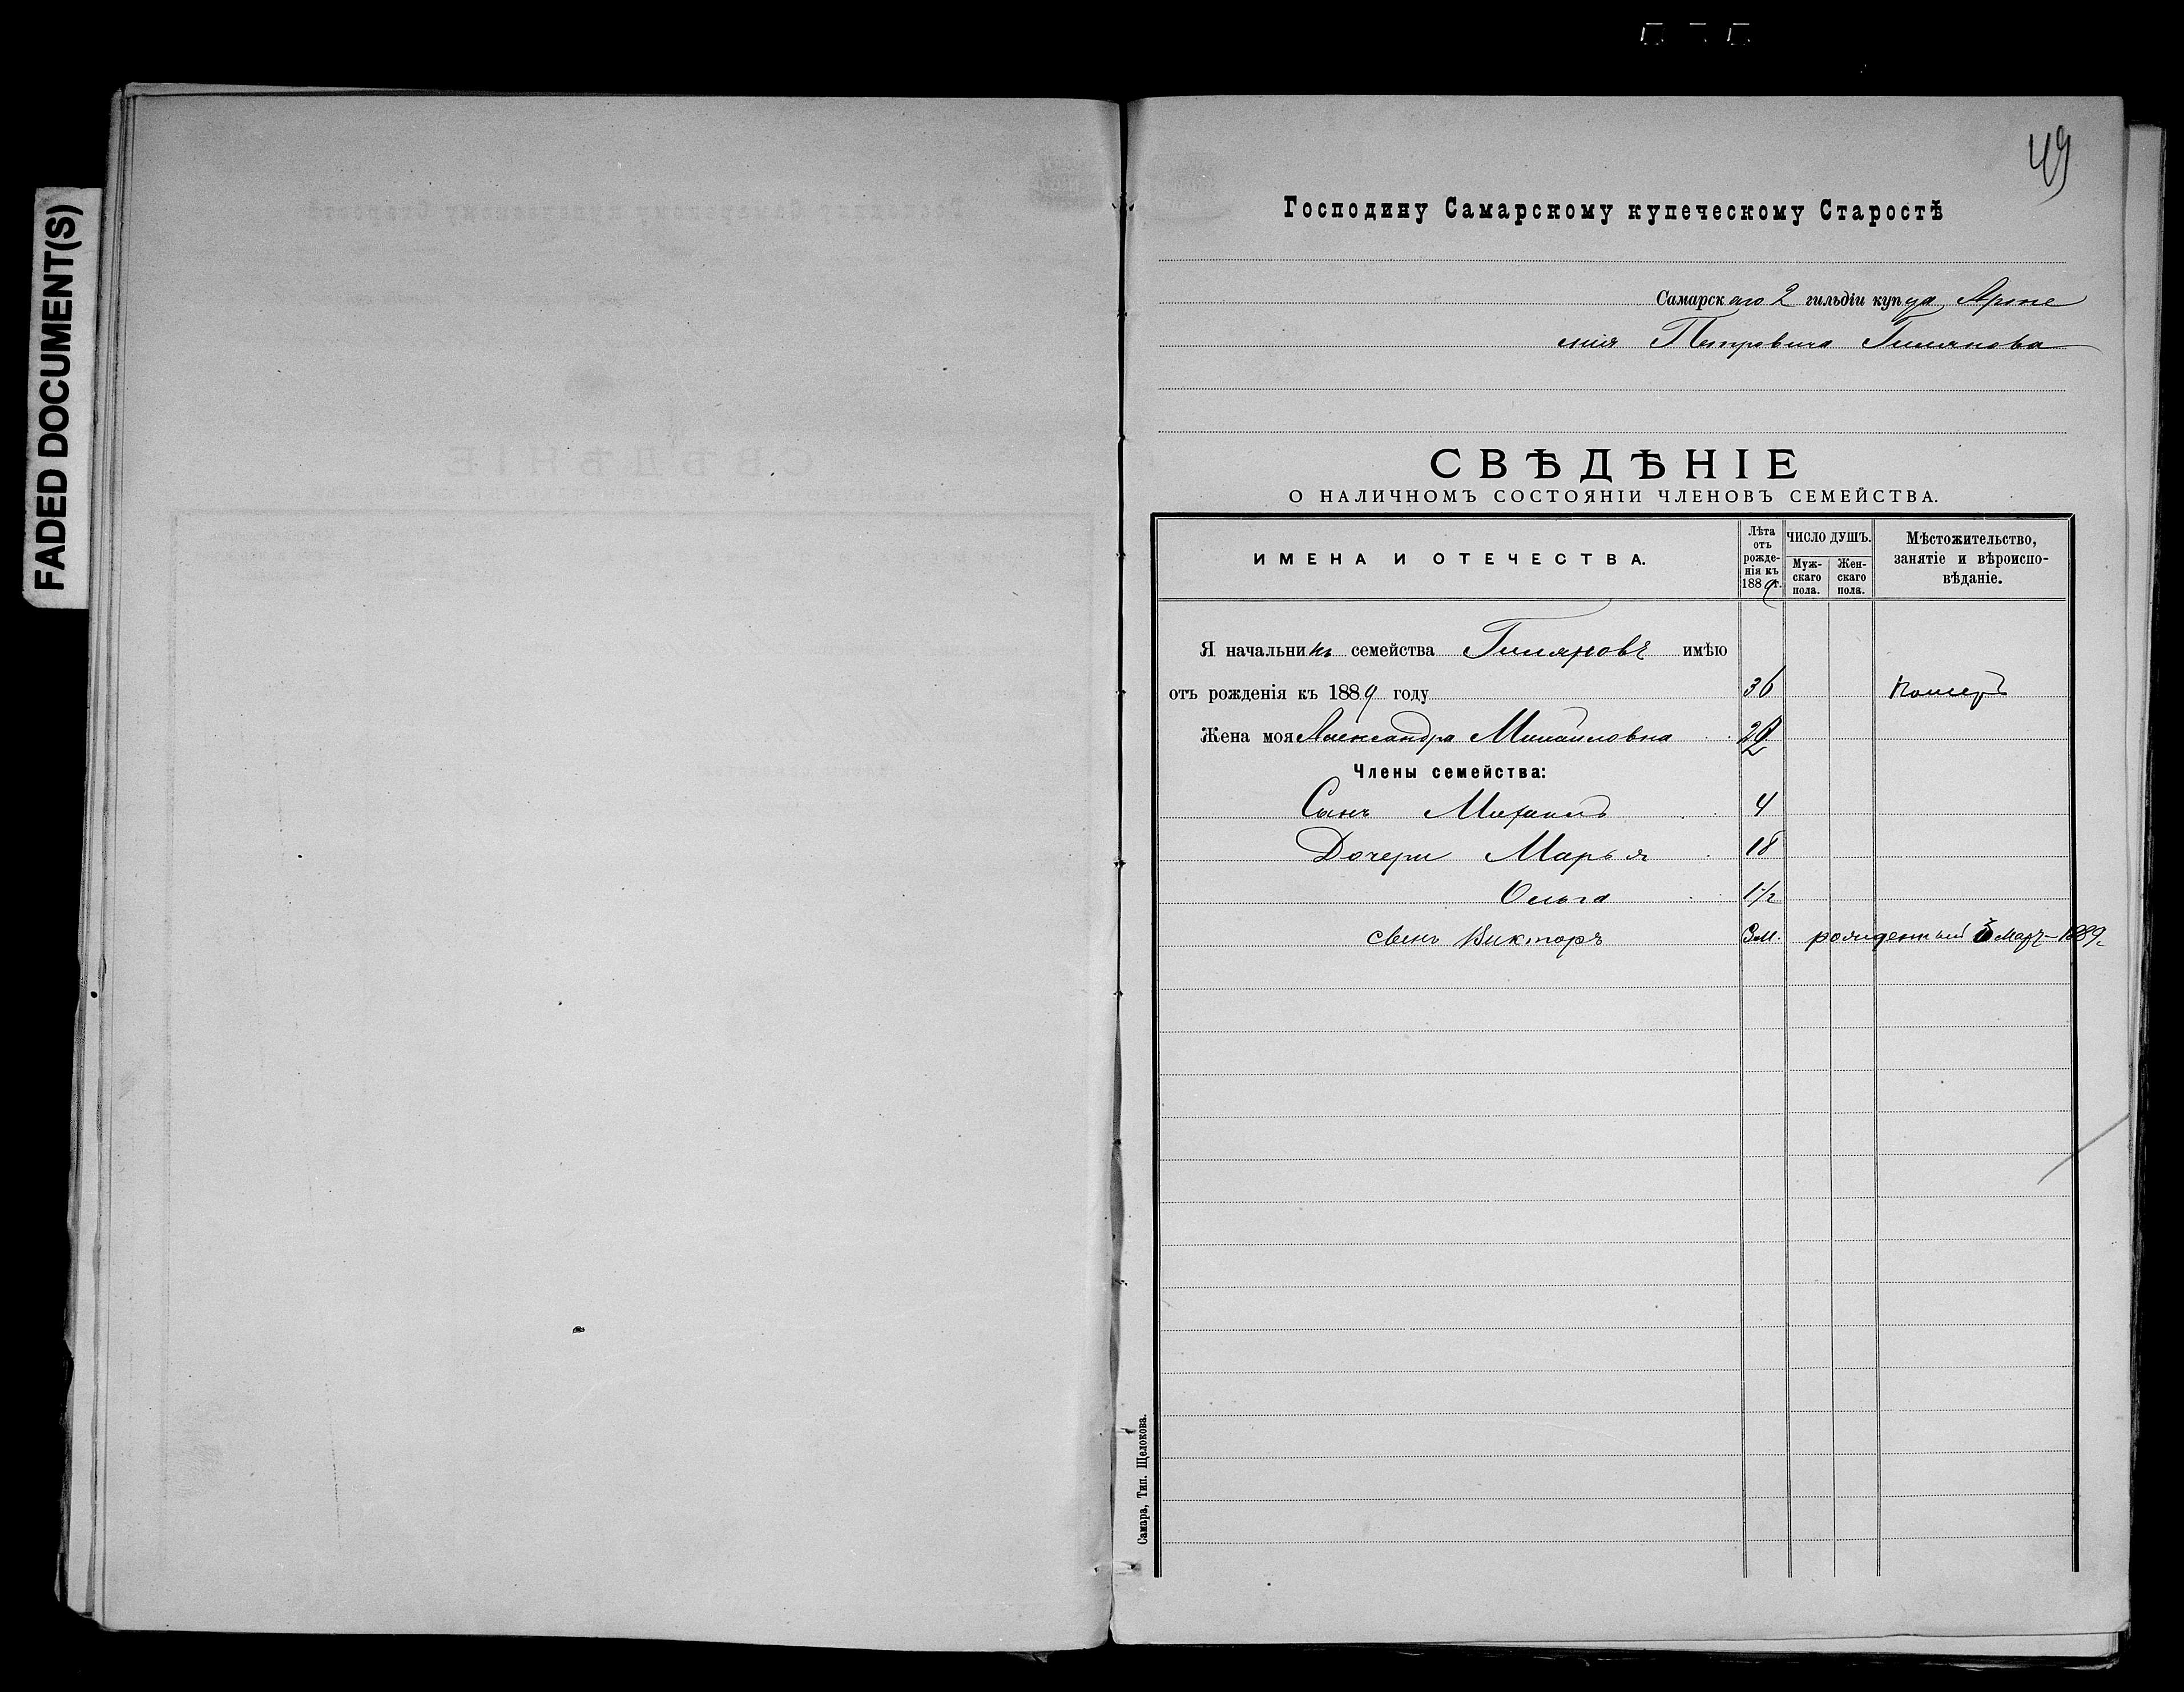 FADED DOCUMENT(S)
49
Господину Самарскому купеческому Старостѣ
Самарскаго 2 гильдіи купца Арте
мія Петровича
СВѢДѢНІЕ
О НАЛИЧНОМЪ СОСТОЯНІИ ЧЛЕНОВЪ СЕМЕЙСТВА.
ИМЕНА И ОТЕЧЕСТВА.
Лѣта отъ рожде-нія къ 1889 г.
ЧИСЛО ДУШЪ.
Муж-скаго пола.
Жен-скаго пола.
Мѣстожительство, занятіе и вѣроиспо-вѣданіе.
Я начальникъ семейства имѣю
отъ рожденія къ 1889 году 36
Жена моя Александра Михайловна
Члены семейства:
Сынъ Михаилъ 4
Дочери Марья 18
Ольга 1 1/2
сынъ Викторъ 3 м. рожденный март 1889 г.
Самара, Тип. Щелокова.